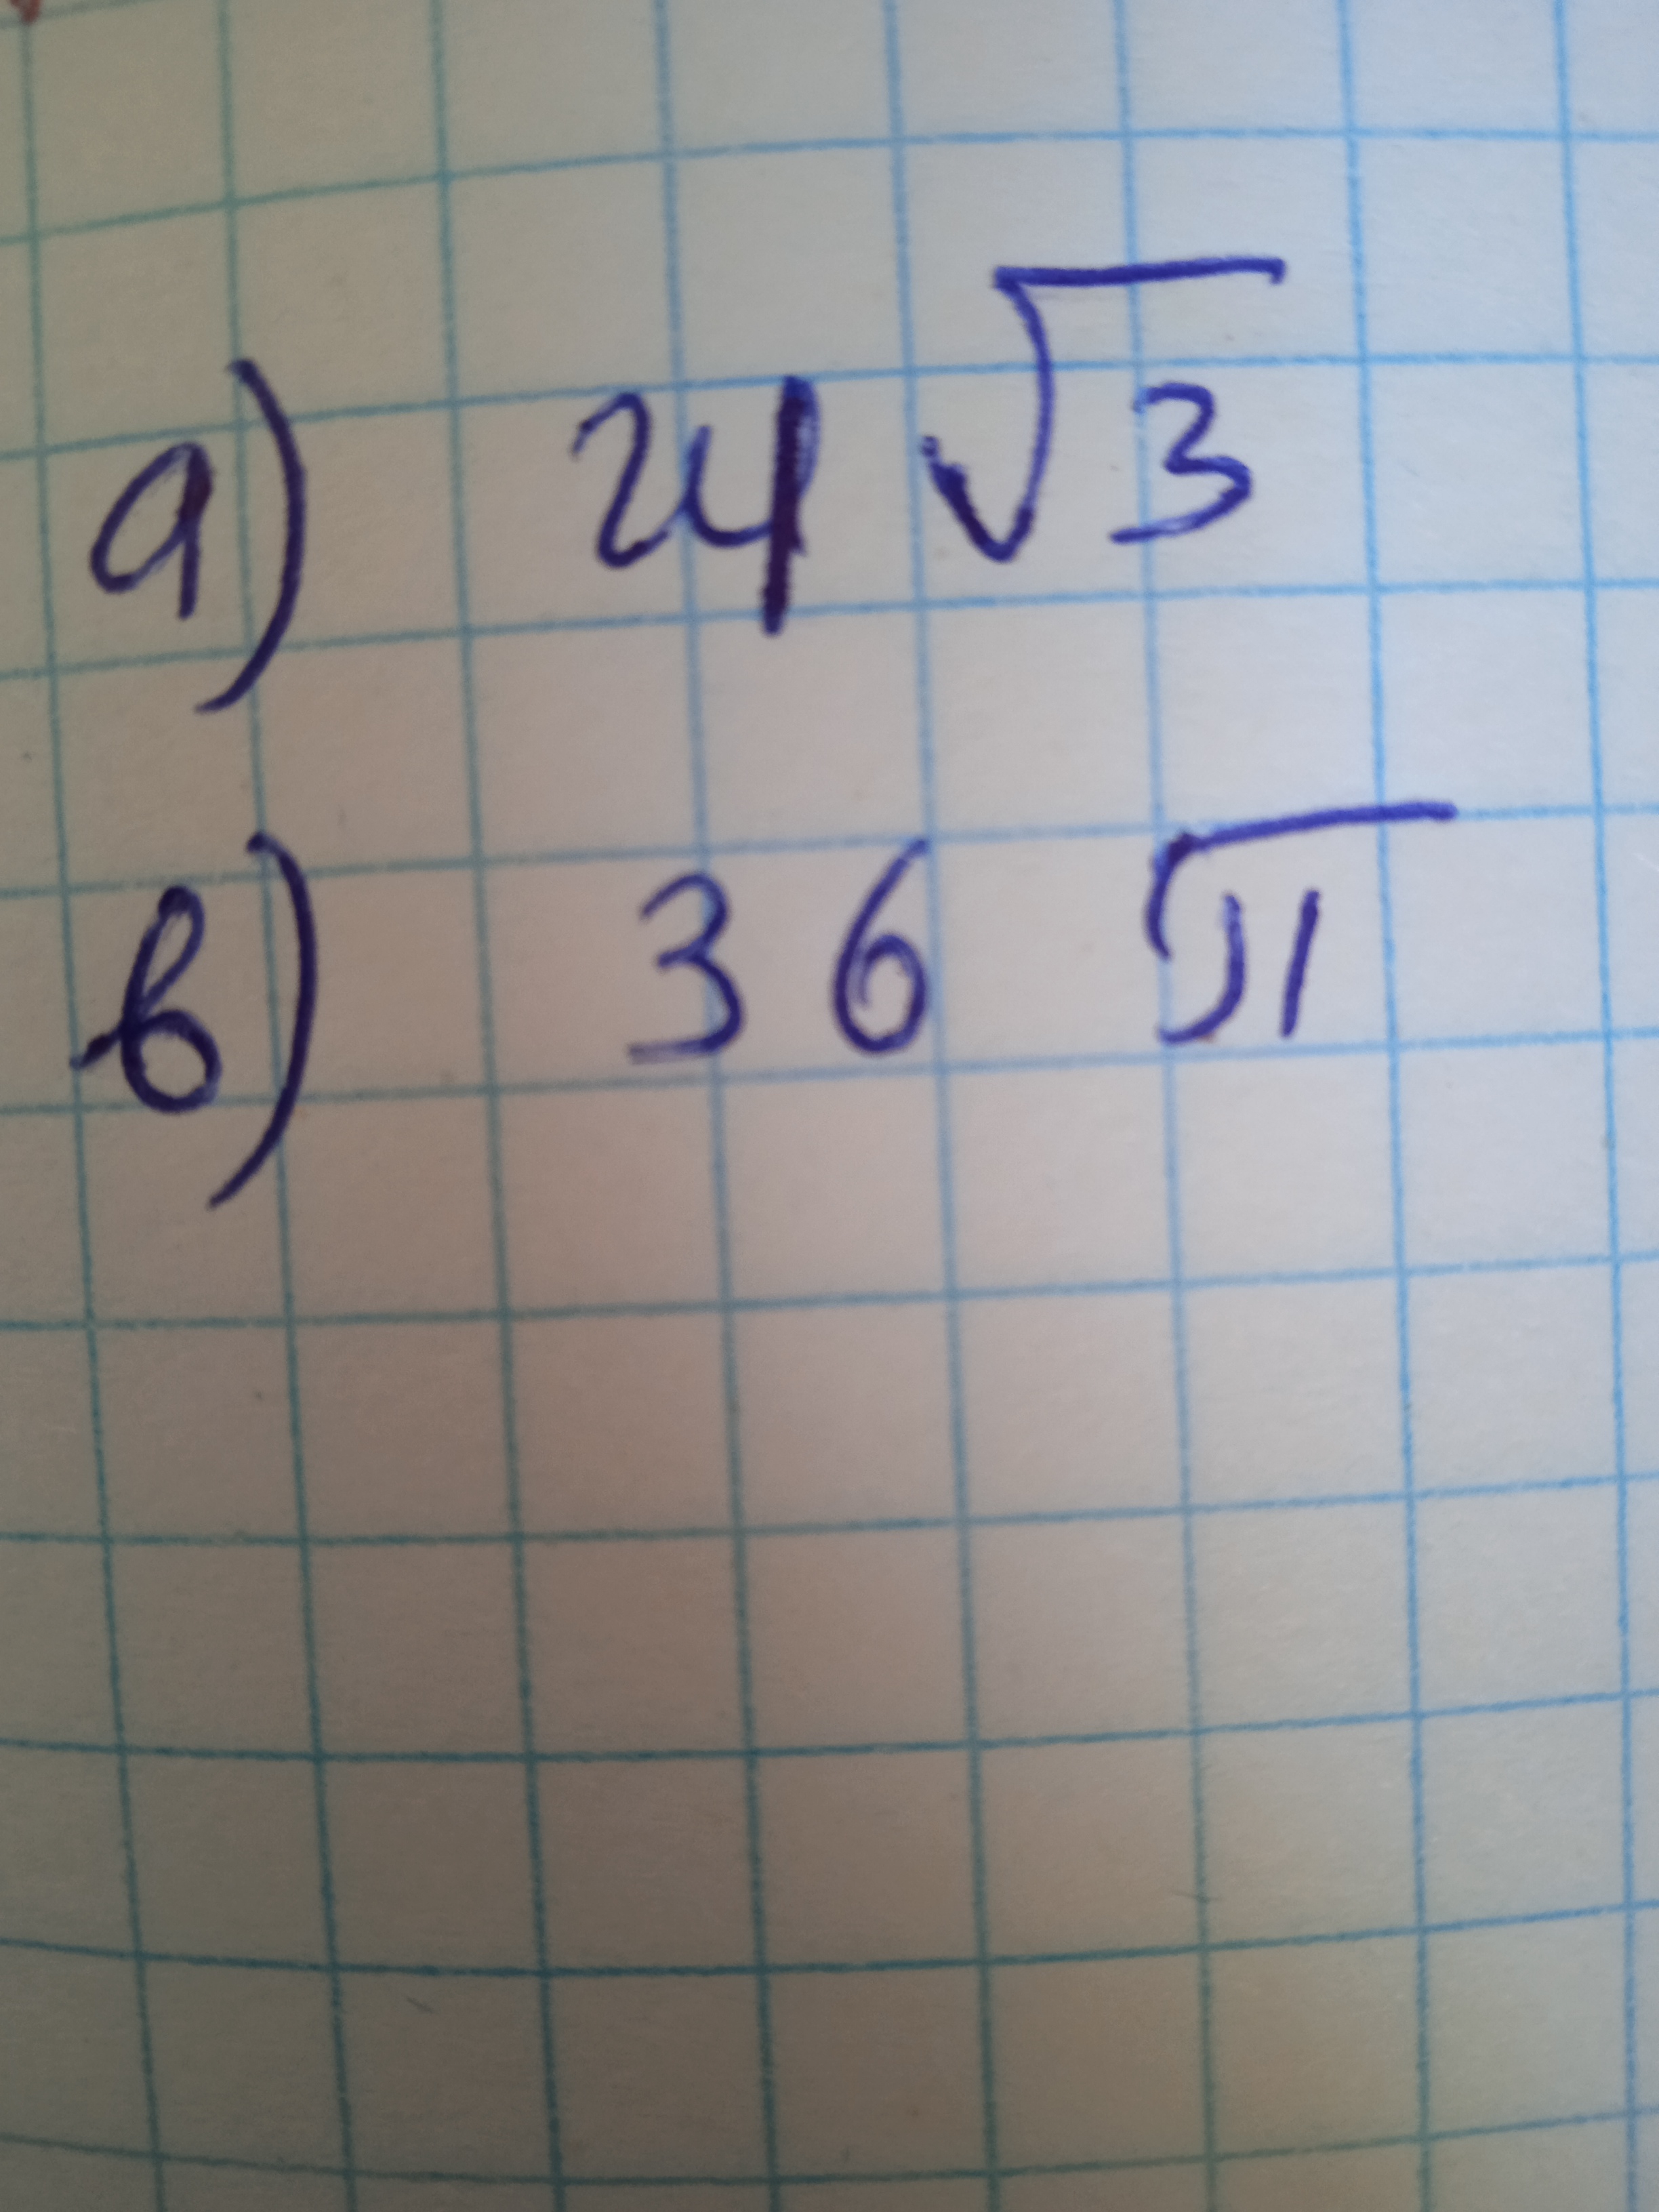 а) 24 √3
в) 36 π